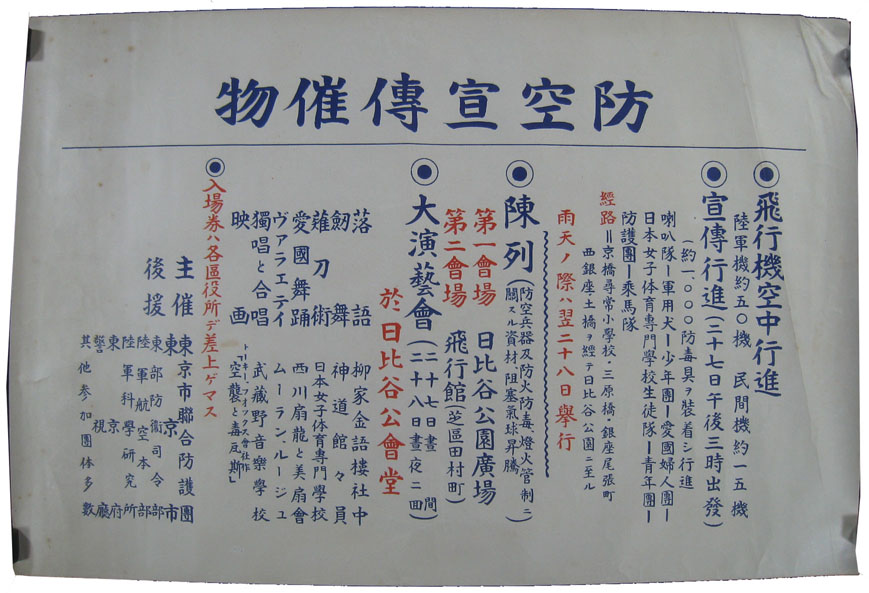 防空宣傳催物
◉飛行機空中行進
陸軍機約五〇機 民間機約一五機
◉宣傳行進(二十七日午後三時出發)
(約一、〇〇〇防毒具ヲ裝着シ行進
喇叭隊ー軍用犬ー少年團ー愛國婦人團ー
日本女子体育專門學校生徒隊ー青年團ー
防護團ー乘馬隊
經路=京橋尋常小學校・三原橋・銀座尾張町
西銀座土橋ヲ經テ日比谷公園ニ至ル
雨天ノ際ハ翌二十八日舉行
◉陳列(防空兵器及防火防毒、燈火管制ニ
關スル資材、阻塞氣球昇騰
第一會場 日比谷公園廣場
第二會場 飛行館(芝區田村町)
◉大演藝會(二十七日晝間
二十八日晝夜二回)
於日比谷公會堂
落語 柳家金語樓社中
劒舞 神道館々員
薙刀術 日本女子体育專門學校
愛國舞踊 西川扇龍と美扇會
ヴァラエテイ ムーランルージュ
獨唱と合唱 武蔵野音樂學校
映画 トーキー、フオックス會社作
「空襲と毒瓦斯」
◉入場券ハ各區役所デ差上ゲマス
主催 東京市聯合防護團
東京市
後援 東部防衞司令部
陸軍航空本部
陸軍科學研究所
東京府
警視廳
其他參加團体多數